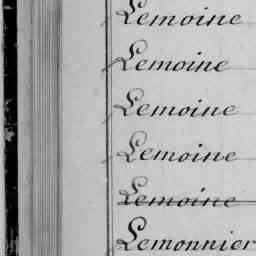 Lemoine
Lemoine
Lemoine
Lemoine
Lemoine
Lemonnier